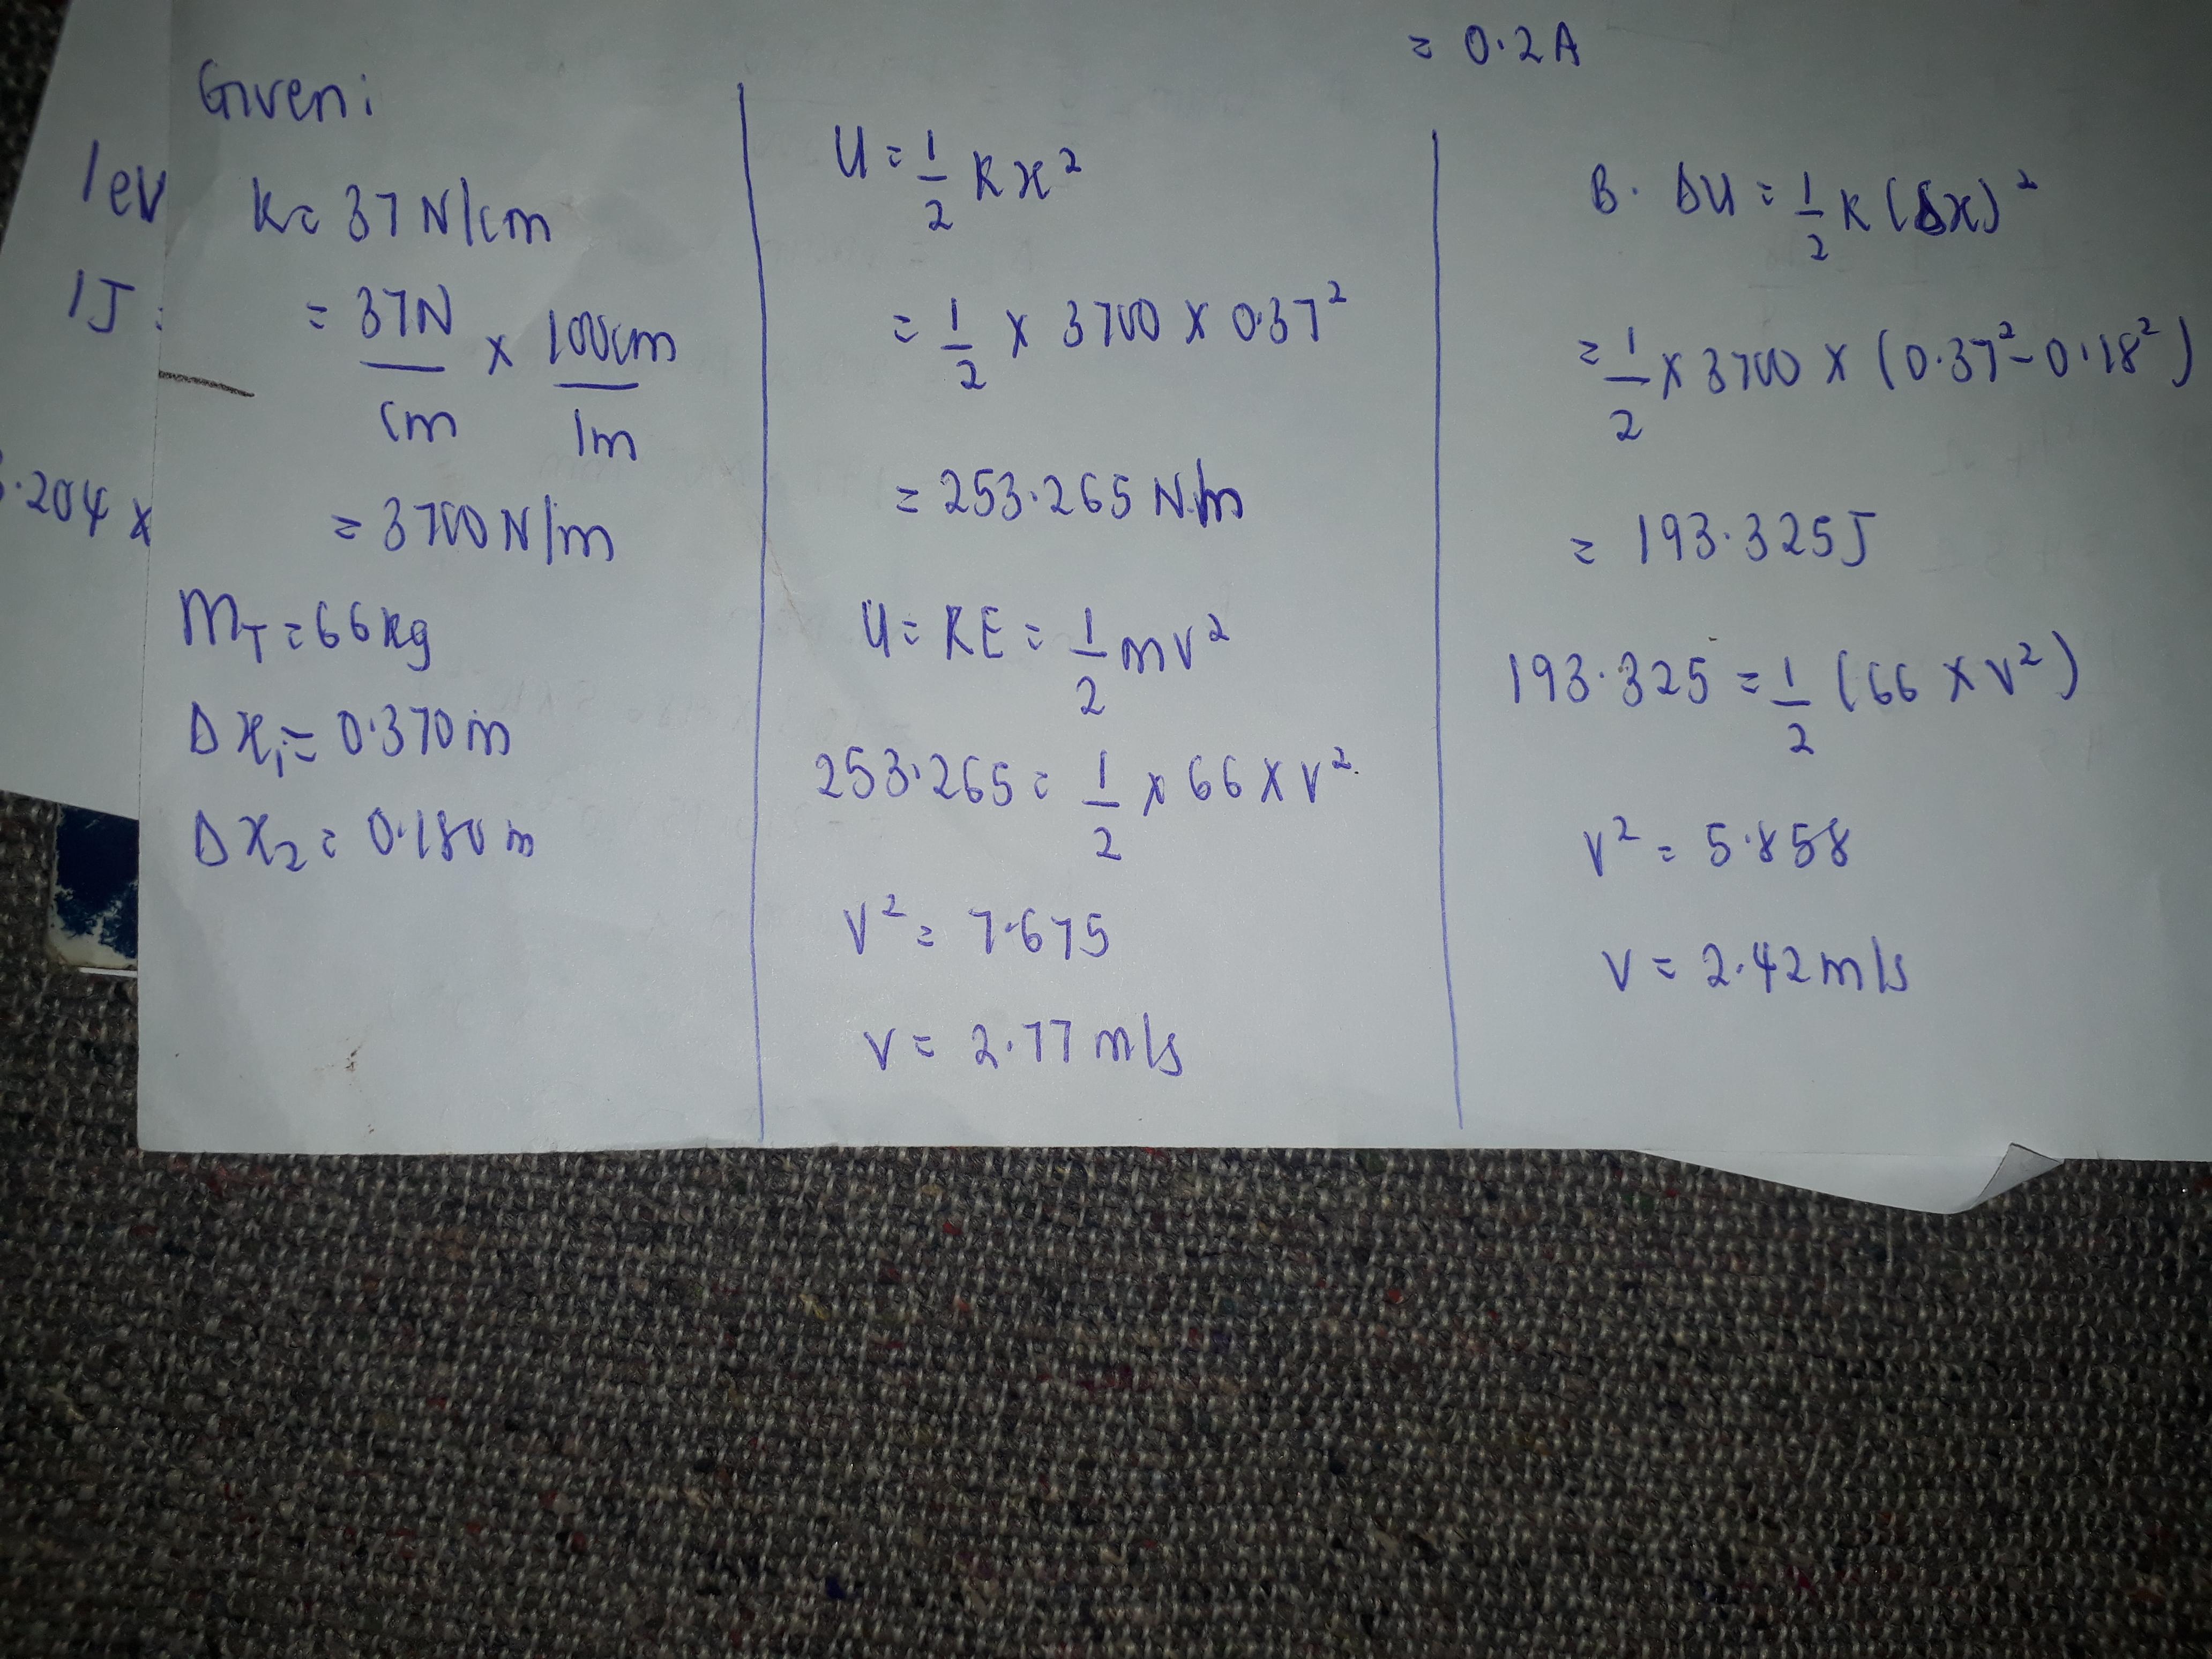 = 0.2A
1ev
1J:
.204 x
Given:
K = 37 N/cm
= 37N/cm x 100cm/1m
= 3700 N/m
MT = 66kg
Δx1 = 0.370m
Δx2 = 0.180m
U = 1/2 Kx²
= 1/2 x 3700 x 0.37²
= 253.265 N.m
U = KE = 1/2 mv²
253.265 = 1/2 x 66 x v²
v² = 7.675
v = 2.77 m/s
B. ΔU = 1/2 K (Δx)²
= 1/2 x 3700 x (0.37² - 0.18²)
= 193.325J
193.325 = 1/2 (66 x v²)
v² = 5.858
v = 2.42 m/s